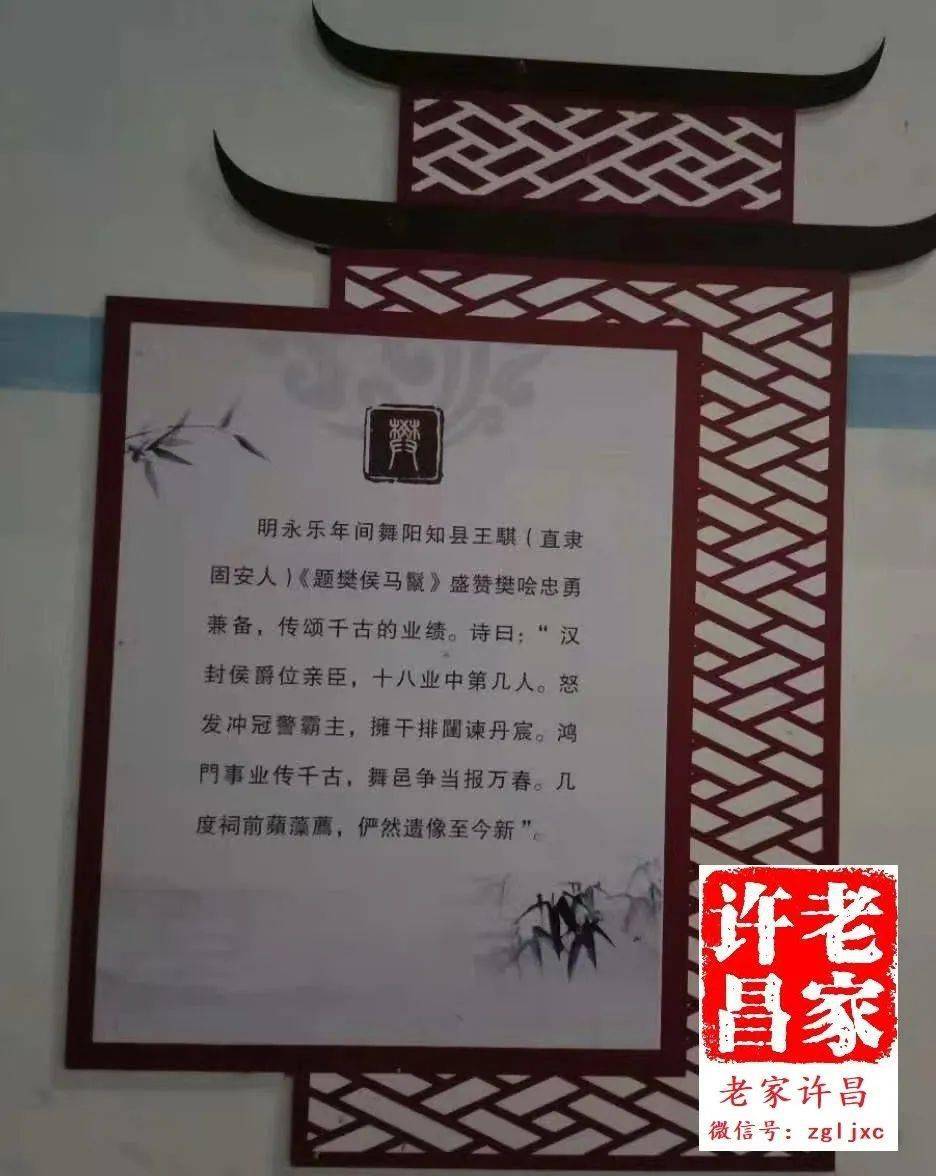 樊
明永乐年间舞阳知县王騏(直隶
固安人)《题樊侯马鬣》盛赞樊哙忠勇
兼备，传颂千古的业绩。诗曰：“汉
封侯爵位亲臣，十八业中第几人。怒
发冲冠警霸主，擁干排闥谏丹宸。鸿
門事业传千古，舞邑争当报万春。几
度祠前蘋藻薦，俨然遗像至今新”。
老家许昌
老家许昌
微信号：zgljxc